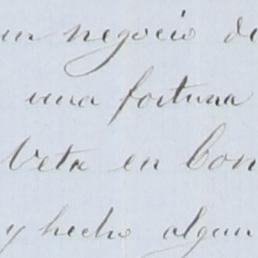 un negocio de
una fortuna
Veta en Con
y hecho algun